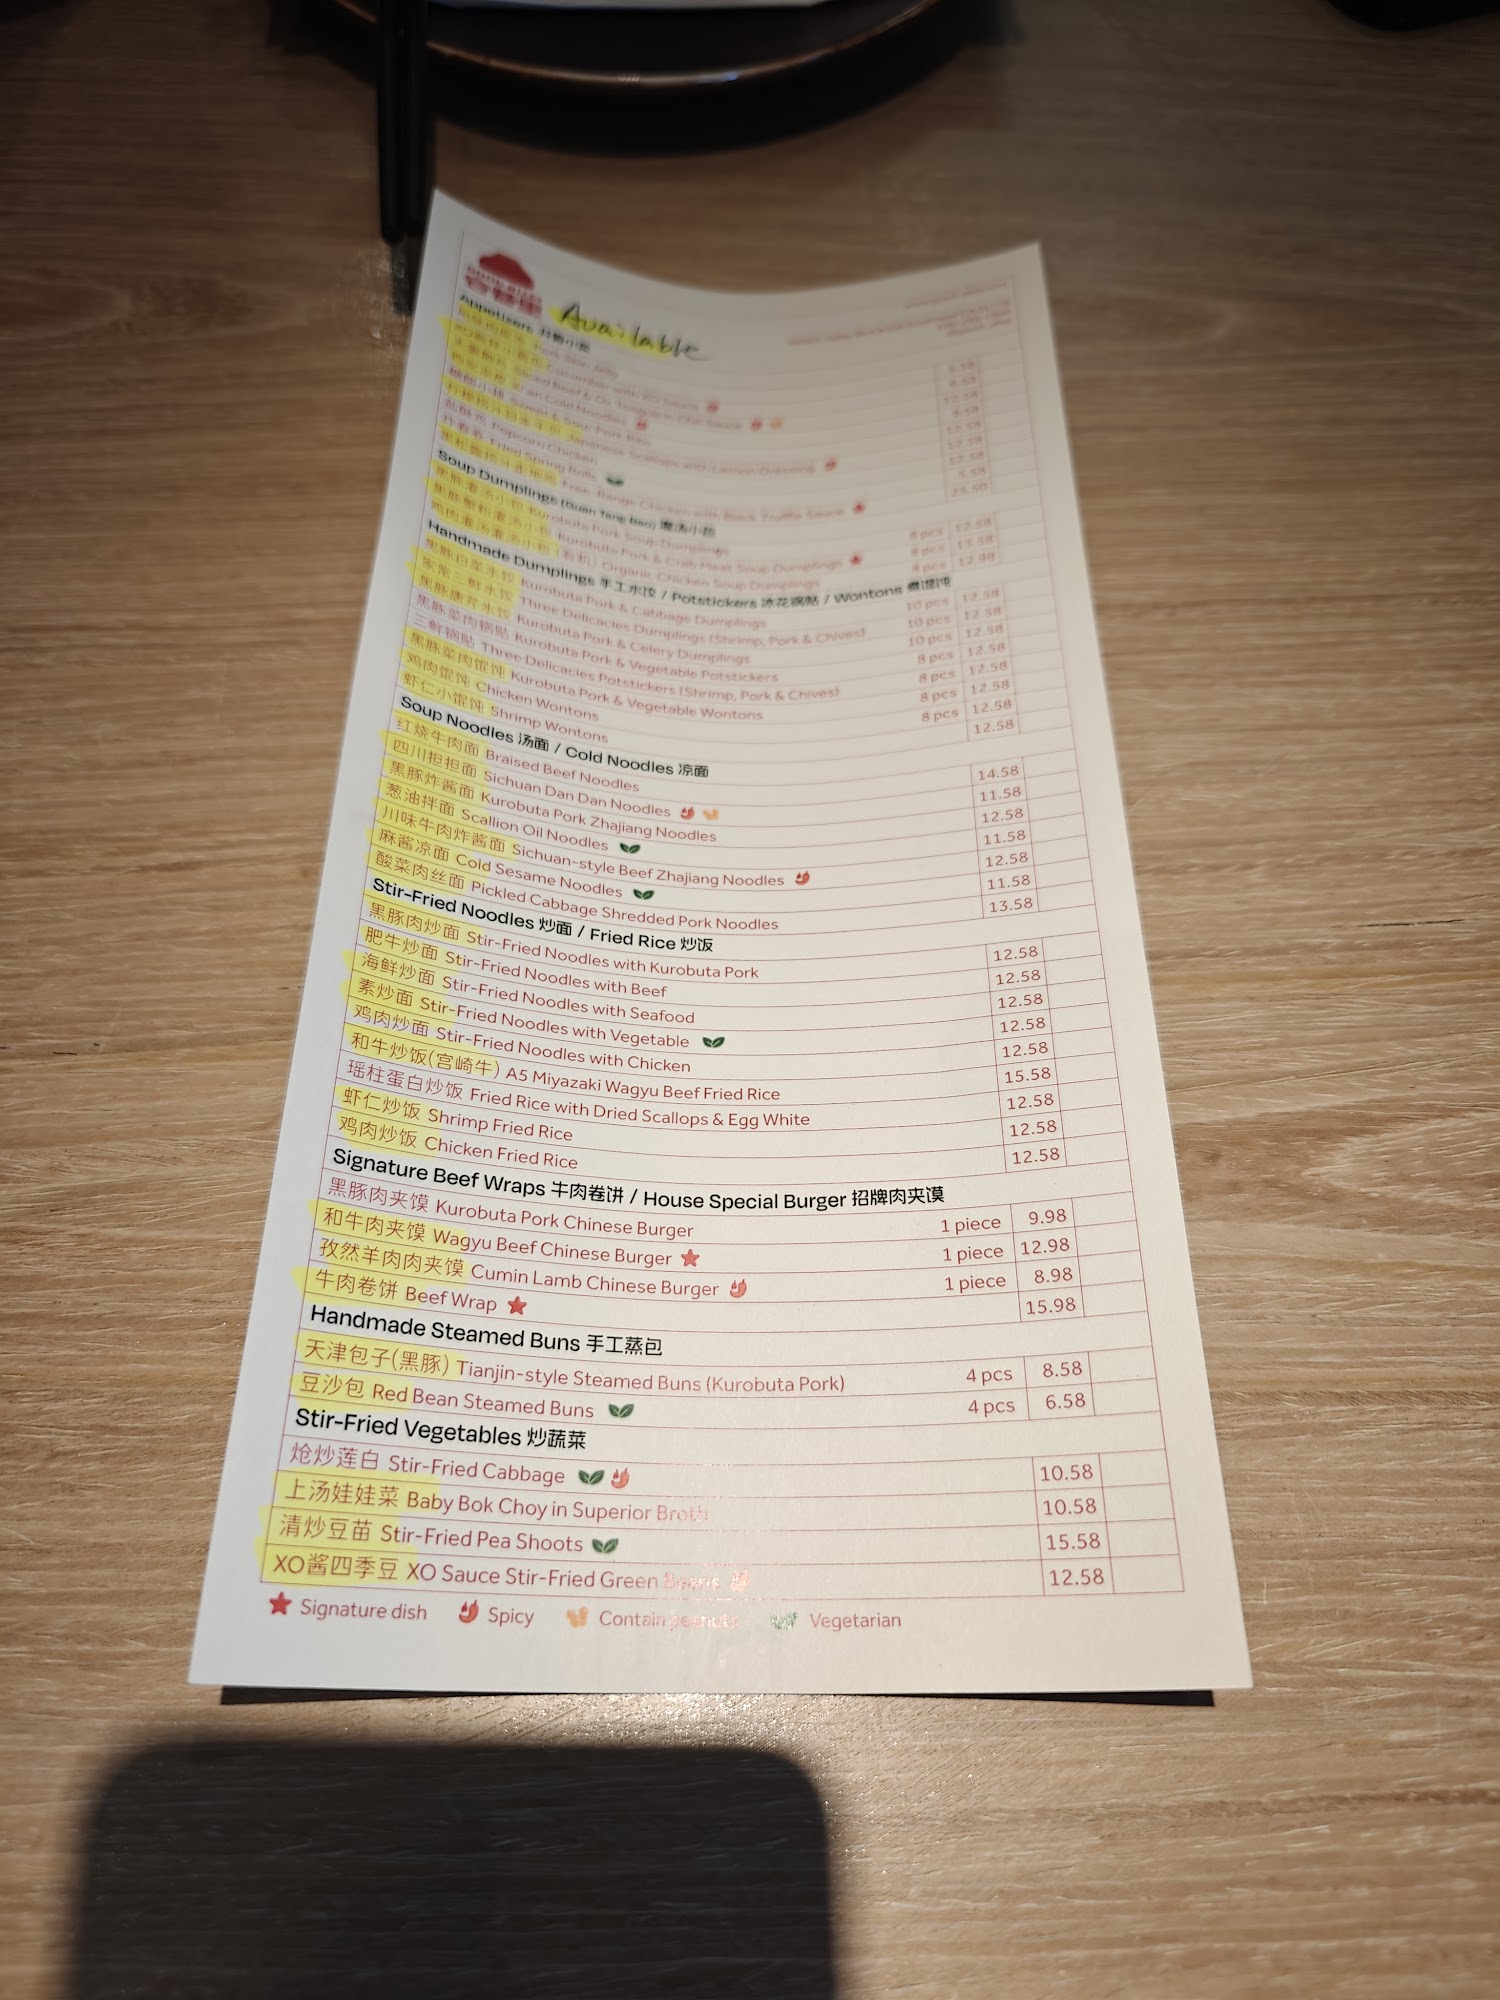 Available
Appetizers 开胃小点
Pork Skin Jelly
Cucumber with XO Sauce
Sliced Beef & Ox Tongue in Chili Sauce
Xi'an Cold Noodles
糖醋小排 Sweet & Sour Pork Ribs
Japanese Scallops with Lemon Dressing
盐酥鸡 Popcorn Chicken
炸春卷 Fried Spring Rolls
Free-Range Chicken with Black Truffle Sauce 25.50
Soup Dumplings (Guan Tang Bao) 灌汤小包
黑豚灌汤小包 Kurobuta Pork Soup Dumplings 8 pcs 12.58
黑豚蟹粉灌汤小包 Kurobuta Pork & Crab Meat Soup Dumplings 8 pcs 15.58
鸡肉灌汤小包 (有机) Organic Chicken Soup Dumplings 8 pcs 12.98
Handmade Dumplings 手工水饺 / Potstickers 冰花锅贴 / Wontons 煮馄饨
黑豚白菜水饺 Kurobuta Pork & Cabbage Dumplings 10 pcs 12.58
家常三鲜水饺 Three Delicacies Dumplings (Shrimp, Pork & Chives) 10 pcs 12.58
黑豚唐芹水饺 Kurobuta Pork & Celery Dumplings 10 pcs 12.58
黑豚菜肉锅贴 Kurobuta Pork & Vegetable Potstickers 8 pcs 12.58
三鲜锅贴 Three Delicacies Potstickers (Shrimp, Pork & Chives) 8 pcs 12.58
黑豚菜肉馄饨 Kurobuta Pork & Vegetable Wontons 8 pcs 12.58
鸡肉馄饨 Chicken Wontons 8 pcs 12.58
虾仁小馄饨 Shrimp Wontons 12.58
Soup Noodles 汤面 / Cold Noodles 凉面
红烧牛肉面 Braised Beef Noodles 14.58
四川担担面 Sichuan Dan Dan Noodles 11.58
黑豚炸酱面 Kurobuta Pork Zhajiang Noodles 12.58
葱油拌面 Scallion Oil Noodles 11.58
川味牛肉炸酱面 Sichuan-style Beef Zhajiang Noodles 12.58
麻酱凉面 Cold Sesame Noodles 11.58
酸菜肉丝面 Pickled Cabbage Shredded Pork Noodles 13.58
Stir-Fried Noodles 炒面 / Fried Rice 炒饭
黑豚肉炒面 Stir-Fried Noodles with Kurobuta Pork 12.58
肥牛炒面 Stir-Fried Noodles with Beef 12.58
海鲜炒面 Stir-Fried Noodles with Seafood 12.58
素炒面 Stir-Fried Noodles with Vegetable 12.58
鸡肉炒面 Stir-Fried Noodles with Chicken 12.58
和牛炒饭(宫崎牛) A5 Miyazaki Wagyu Beef Fried Rice 15.58
瑶柱蛋白炒饭 Fried Rice with Dried Scallops & Egg White 12.58
虾仁炒饭 Shrimp Fried Rice 12.58
鸡肉炒饭 Chicken Fried Rice 12.58
Signature Beef Wraps 牛肉卷饼 / House Special Burger 招牌肉夹馍
黑豚肉夹馍 Kurobuta Pork Chinese Burger 1 piece 9.98
和牛肉夹馍 Wagyu Beef Chinese Burger 1 piece 12.98
孜然羊肉肉夹馍 Cumin Lamb Chinese Burger 1 piece 8.98
牛肉卷饼 Beef Wrap 15.98
Handmade Steamed Buns 手工蒸包
天津包子(黑豚) Tianjin-style Steamed Buns (Kurobuta Pork) 4 pcs 8.58
豆沙包 Red Bean Steamed Buns 4 pcs 6.58
Stir-Fried Vegetables 炒蔬菜
炝炒莲白 Stir-Fried Cabbage 10.58
上汤娃娃菜 Baby Bok Choy in Superior Broth 10.58
清炒豆苗 Stir-Fried Pea Shoots 15.58
XO酱四季豆 XO Sauce Stir-Fried Green Beans 12.58
Signature dish Spicy Contain peanuts Vegetarian